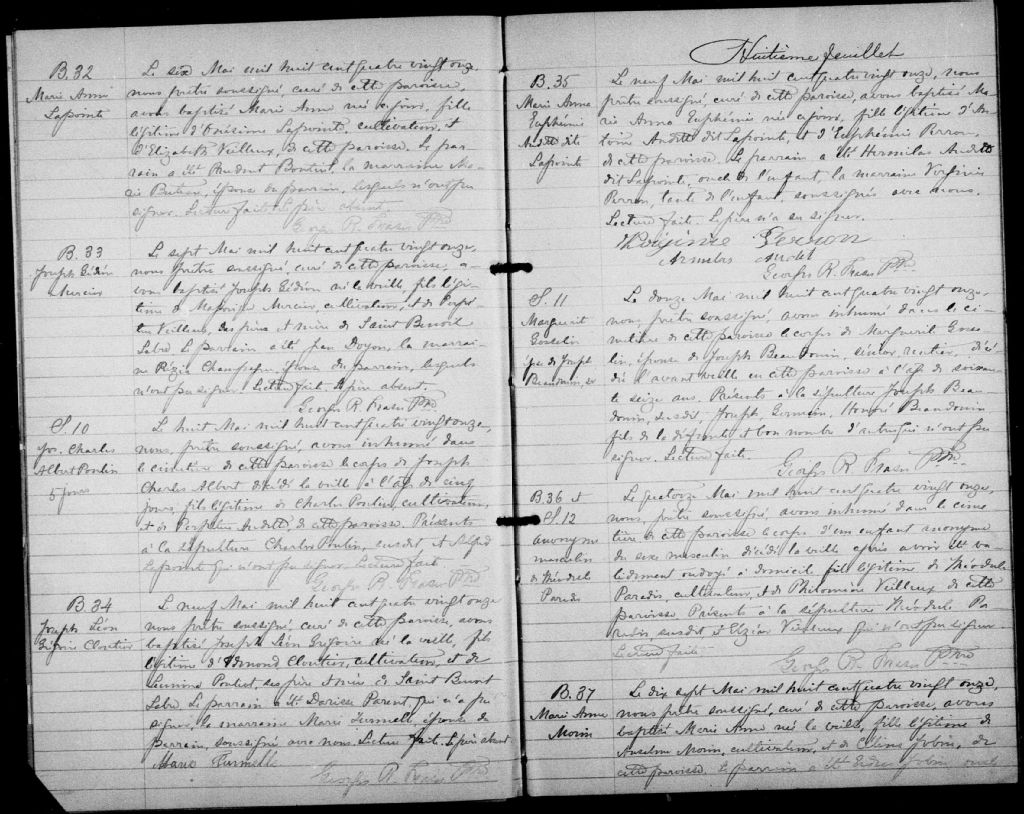 B.32
Marie Anne
Lapointe
Le six Mai mil huit cent quatre vingt onze
nous prêtre soussigné, curé de cette paroisse,
avons baptisé Marie Anne née ce jour, fille
légitime d'Onésime Lapointe, cultivateur, et
d'Elizabeth Veilleux, de cette paroisse. Le par-
rain a été Prudent la marraine Ma-
rie épouse du parrain, lesquels n'ont pu
signer. Lecture faite. Le père absent.
Georges R. Fraser Ptre
B. 33
Joseph Gédéon
Mercier
Le sept Mai mil huit cent quatre vingt onze,
nous prêtre soussigné, curé de cette paroisse, a-
vons baptisé Joseph Gédéon né la veille, fils légi-
time de Mercier, cultivateur, et de Perpé-
tue Veilleux, ses père et mère de Saint Benoit
Labre. Le parrain a été Jean Doyon, la marrai-
ne épouse du parrain, lesquels
n'ont pu signer. Lecture faite. Le père absent.
Georges R. Fraser Ptre
S. 10
Jos. Charles
Albert Poulin
5 jours
Le huit Mai mil huit cent quatre vingt onze,
nous, prêtre soussigné, avons inhumé dans
le cimetière de cette paroisse le corps de Joseph
Charles Albert décédé la veille à l'âge de cinq
jours, fils légitime de Charles Poulin, cultivateur,
et de Perpétue Audette de cette paroisse. Présents
à la sépulture Charles Poulin, susdit et Alfred
Lapointe qui n'ont pu signer. Lecture faite.
Georges R. Fraser Ptre
B.34
Joseph Léon
Grégoire Cloutier
Le neuf Mai mil huit cent quatre vingt onze
nous prêtre soussigné, curé de cette paroisse, avons
baptisé Joseph Léon Grégoire né la veille, fils
légitime d'Edmond Cloutier, cultivateur, et de
Pouliot, ses père et mère de Saint Benoit
Labre. Le parrain a été Parent, qui n'a pu
signer, la marraine Marie Turmelle, épouse du
parrain, soussigné avec nous. Lecture faite. Le père absent
Marie Turmelle
Georges R. Fraser Ptre
Huitième feuillet
B. 35
Marie Anna
Euphémie
Audette dit
Lapointe
Le neuf Mai mil huit cent quatre vingt onze, nous
prêtre soussigné, curé de cette paroisse, avons baptisé Ma-
rie Anna Euphémie née ce jour, fille légitime d'An-
toine Audette dit Lapointe, et d'Euphémie Perron,
de cette paroisse. Le parrain a été Hermilas Audette
dit Lapointe, oncle de l'enfant, la marraine Virginie
Perron, tante de l'enfant, soussignés avec nous.
Lecture faite. Le père n'a su signer.
Virginie Perron
Audet
Georges R. Fraser Ptre
S. 11
Marguerite
Gosselin
épse de Joseph
Beaudouin, sr
Le douze Mai mil huit cent quatre vingt onze,
nous prêtre soussigné, avons inhumé dans le ci-
metière de cette paroisse le corps de Marguerite Gosse-
lin, épouse de Joseph Beaudouin, senior, rentier, décé-
dée l'avant veille en cette paroisse à l'âge de soixan-
te seize ans. Présents à la sépulture Joseph Beau-
douin, susdit, Joseph, Germain, Honoré Beaudouin
fils de la défunte et bon nombre d'autres qui n'ont pu
signer. Lecture faite.
Georges R. Fraser Ptre
B.36 et
S. 12
anonyme
masculin
de Théodule
Parodis
Le quatorze Mai mil huit cent quatre vingt onze,
nous, prêtre soussigné, avons inhumé dans le cime
tière de cette paroisse le corps d'un enfant anonyme
du sexe masculin décédé la veille après avoir été va-
lidement ondoyé à domicile fils légitime de Théodule
Parodis, cultivateur, et de Philomène Veilleux de cette
paroisse. Présents à la sépulture Théodule Pa
rodis, susdit et Elzéar Veilleux qui n'ont pu signer
Lecture faite
Georges R. Fraser Ptre
B. 37
Marie Anne
Morin
Le dix sept Mai mil huit cent quatre vingt onze,
nous prêtre soussigné, curé de cette paroisse, avons
baptisé Marie Anne née la veille, fille légitime de
Anselme Morin, cultivateur, et de Célina Jobin, de
cette paroisse. Le parrain a été Jobin oncle